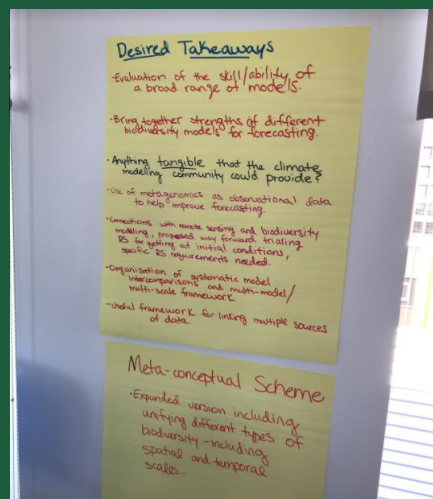 Desired Takeaways
-Evaluation of the skill/ability of
a broad range of models.
-Bring together strengths of different
biodiversity models for forecasting.
-Anything tangible that the climate
modeling community could provide?
-Use of metagenomics as observational data
to help improve forecasting.
-Connections with remote sensing and biodiversity
modeling, proposed way forward trialing
RS for getting at initial conditions,
specific RS requirements needed.
-Organisation of systematic model
intercomparisons and multi-model/
multi-scale framework
-Useful framework for linking multiple sources
of data
Meta-conceptual Scheme
•Expanded version including
unifying different types of
biodiversity-including
spatial and temporal
scales